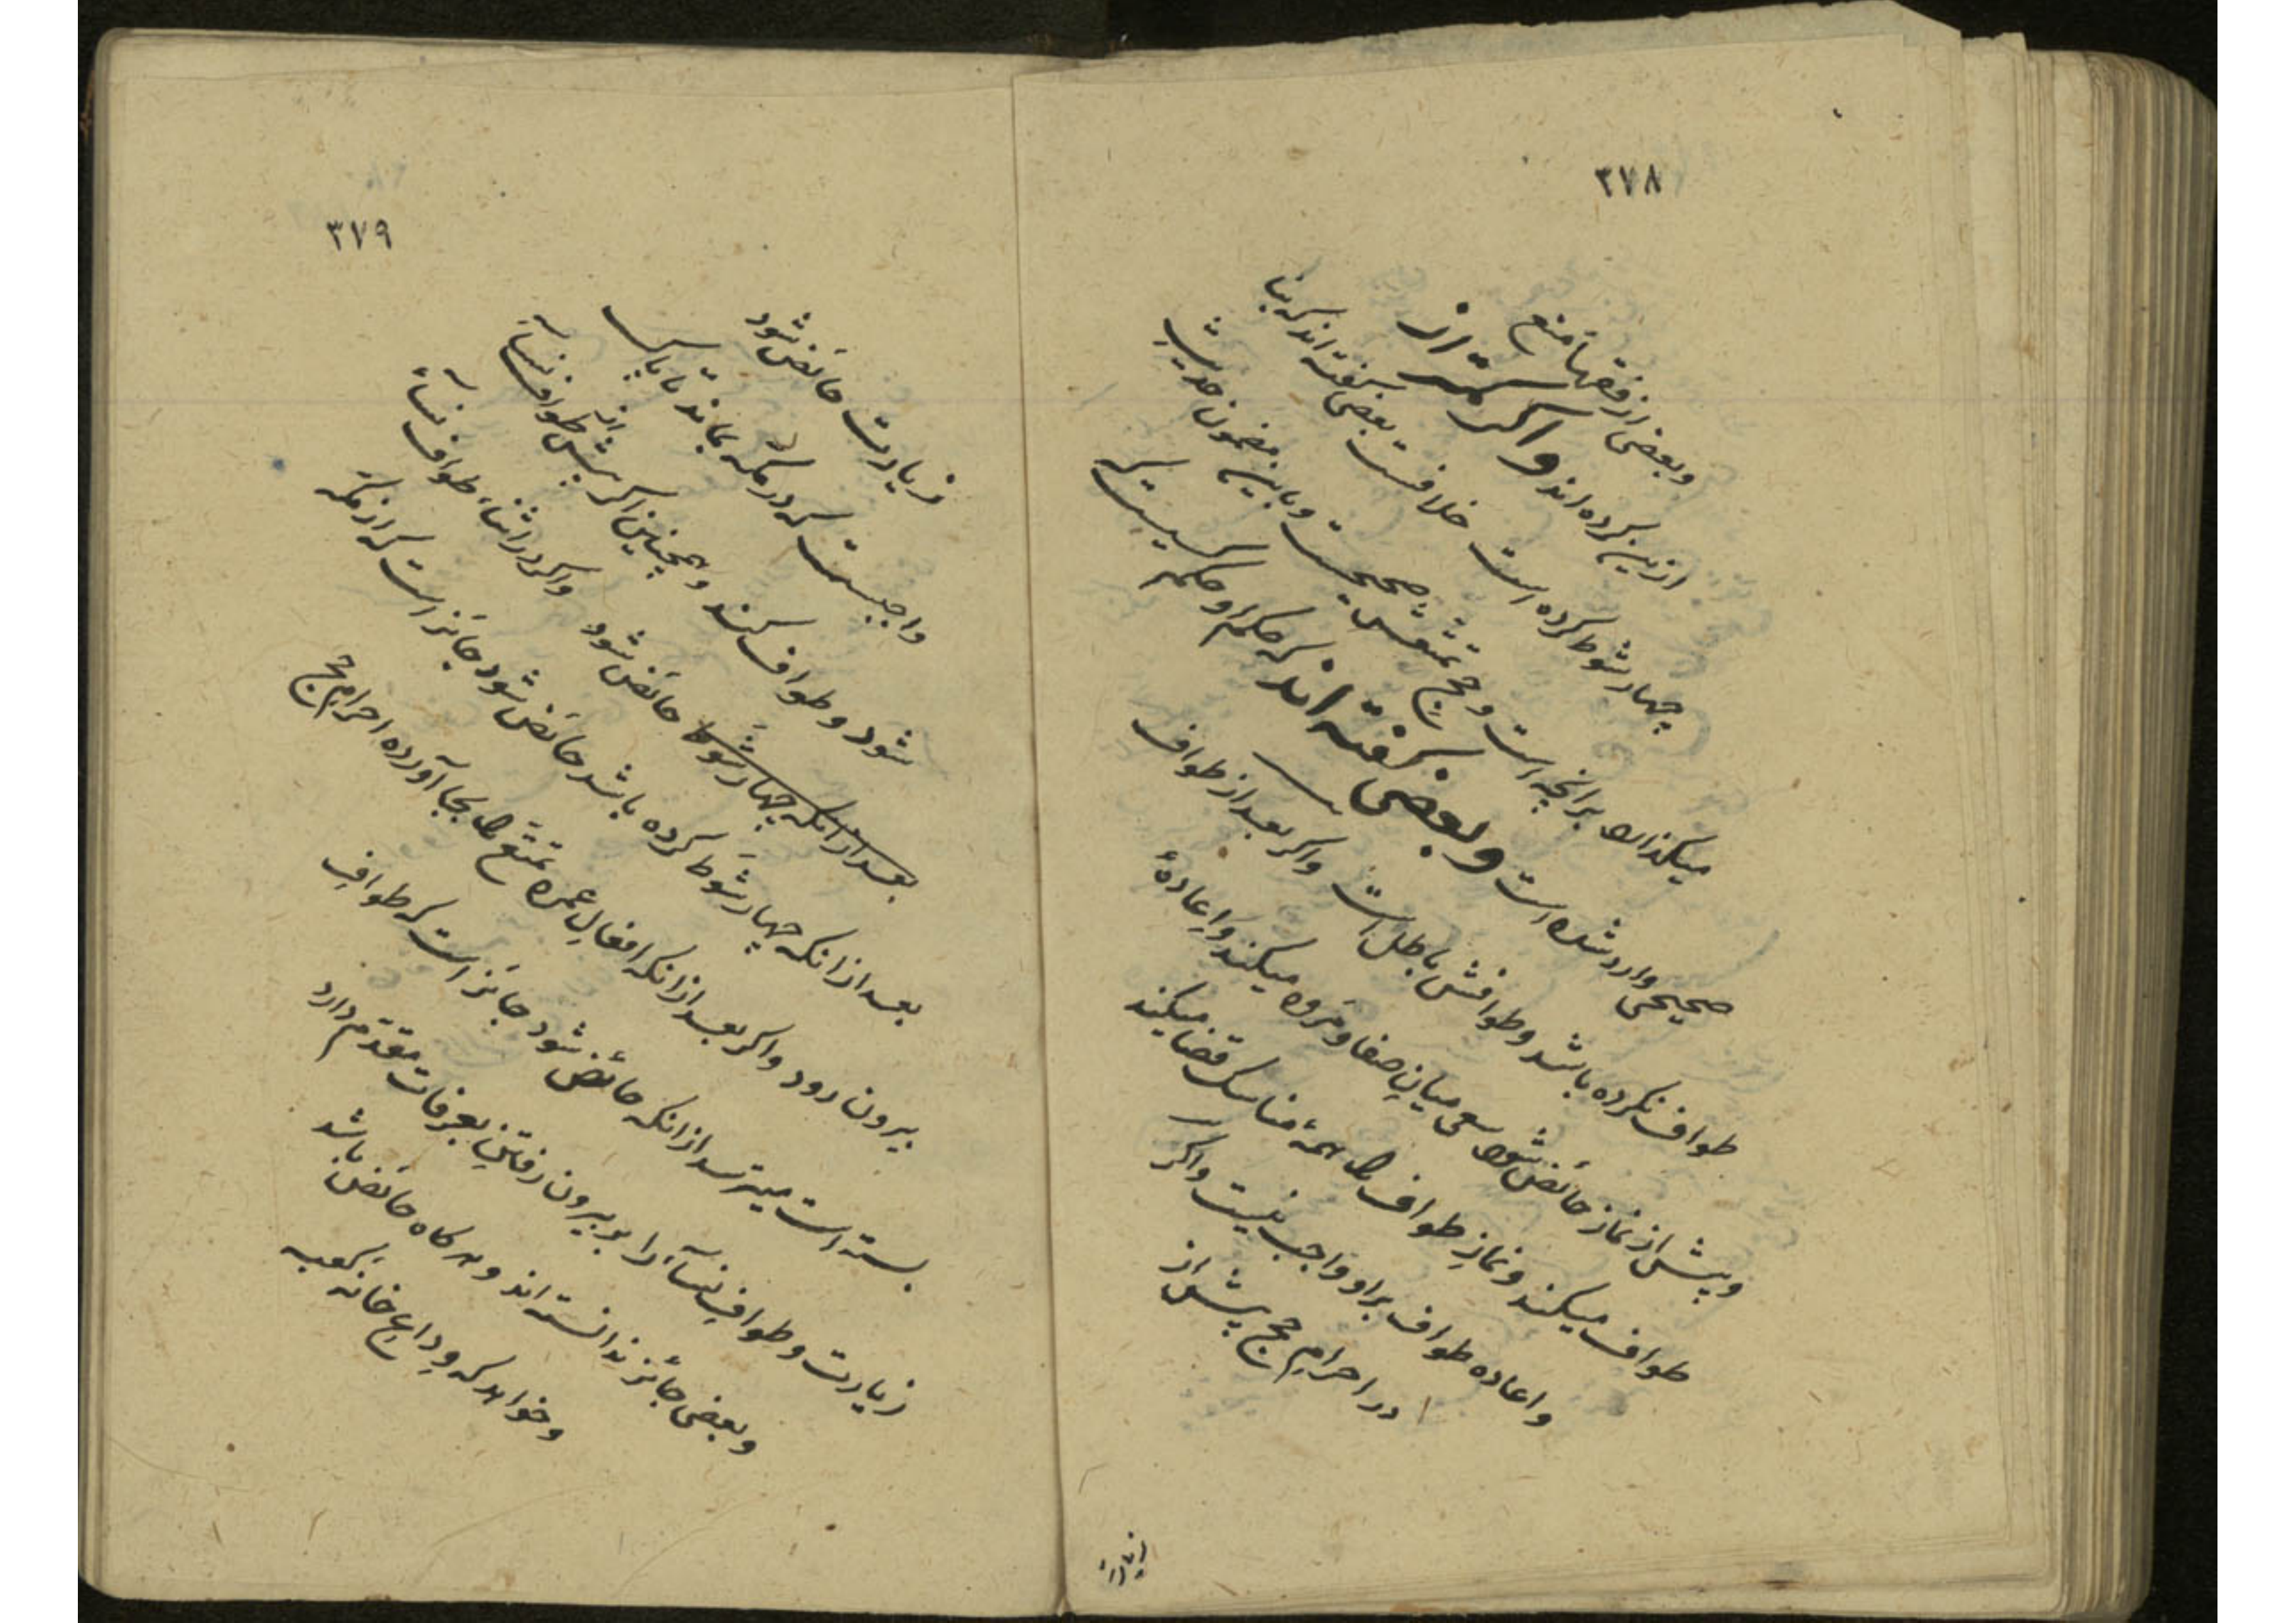 ۳۷۸
وبعضی از فقهاء منع
ازین کرده اند و اکر کمتر از
چهار شوط کرده است خلافست بعضی کفته اند که بنا
میکذارد برانچه است و حج تمتعش صحیحست و باین مضمون حدیث
صحیحی وارد شده است و بعضی کفته اند که حکم او حکم کسیست که
طواف نکرده باشد و طوافش باطل است واکر بعد از طواف
و پیش از نماز حائض شود سعی میان صفا و مروه میکند و اعادهٔ
طواف میکند و نماز طواف را با همهٔ مناسک قضا میکند
واعاده طواف براو واجب نیست واکر
در احرام حج پیش از
زیارت
۳۷۹
زیارت حائض شود
واجبست که در مکه بماند تا پاک
شود و طواف کند و همچنین اکر پیش از طواف نسآء
حائض شود واکر در اثناء طواف نسآء
بعد از انکه چهار شوط
بعد از انکه چهار شوط کرده باشد حائض شود جائز است که از مکه
بیرون رود واکر بعد از انکه افعال عمره تمتع را بجا آورده احرام حج
بسته است میترسد از انکه حائض شود جائز است که طواف
زیارت و طواف نسآء را بر بیرون رفتن بعرفات مقدم دارد
وبعضی جائز ندانسته اند و هرکاه حائض باشد
وخواهد که وداع خانه کعبه